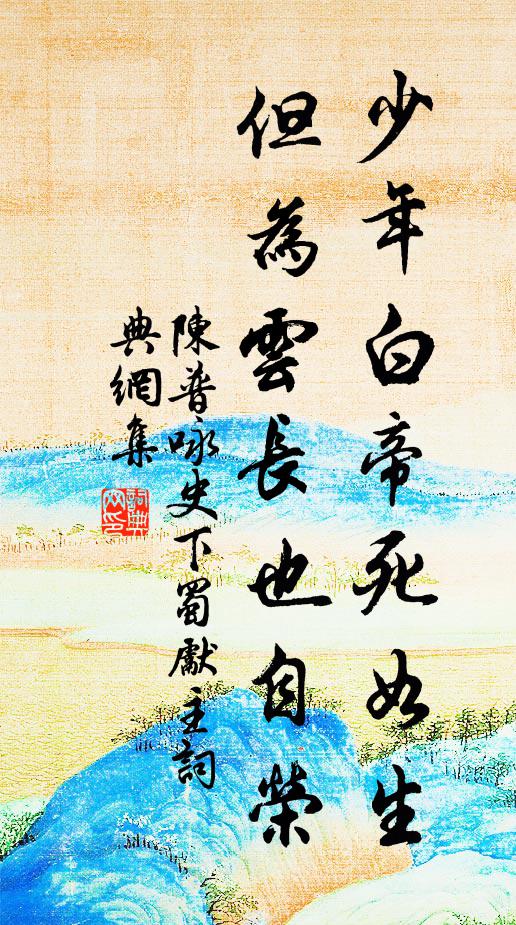 少年白帝死如生
但為雲長也自榮
陳普咏史下蜀獻主詞
典網集
詞典
网印